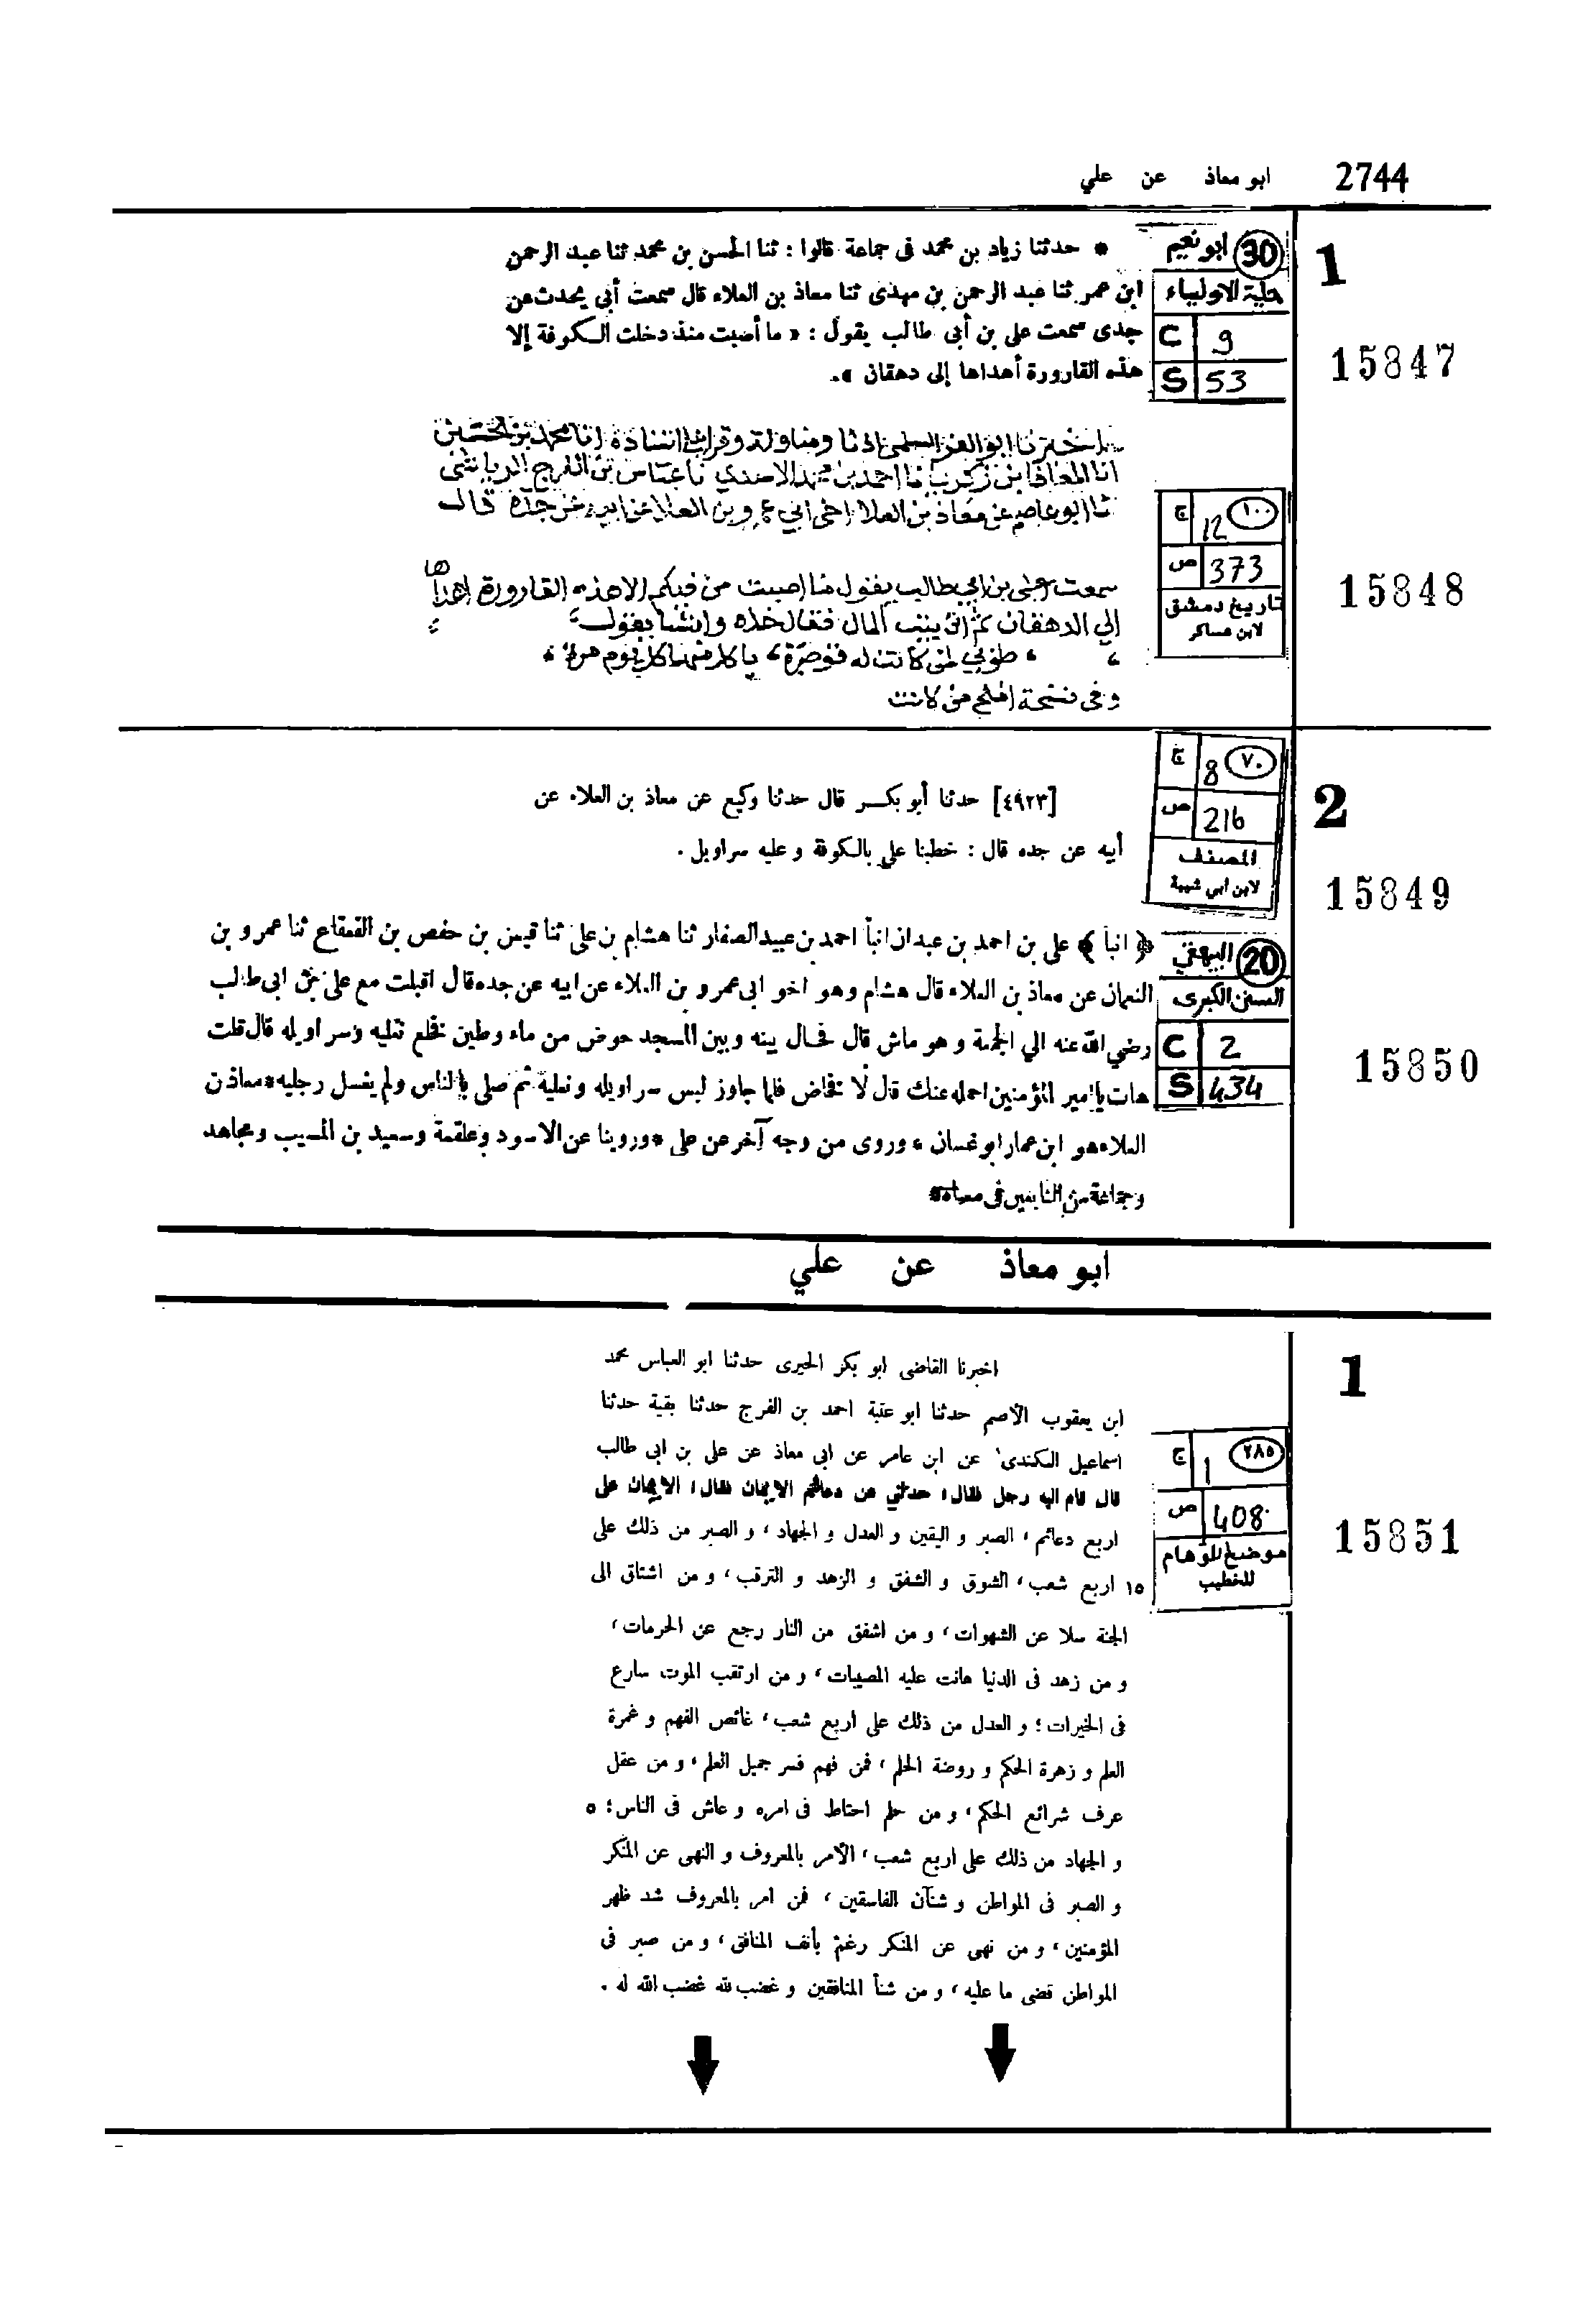 2744 ابو معاذ عن علي
1
15847
30 ابو نعيم
حلية الاولياء
C 9
S 53
* حدثنا زياد بن محمد فى جماعة قالوا : ثنا الحسن بن محمد ثنا عبد الرحمن
ابن عمر ثنا عبد الرحمن بن مهدى ثنا معاذ بن العلاء قال سمعت أبي يحدث عن
جدى سمعت على بن أبى طالب يقول : « ما أصبت منذ دخلت الكوفة إلا
هذه القارورة أهداها إلى دهقان ».
15848
١٠٠ ج 12
ص 373
تاريخ دمشق
لابن عساكر
اخبرنا ابو العز السلمى اذنا ومناولة وقرا اسناده انا محمد بن الحسين
انا المعافا بن زكريا نا احمد بن محمد الاسدي نا عباس بن الفرج الرياشى
نا ابو عاصم عن معاذ بن العلا اخى ابي عمرو بن العلا عن ابيه عن جده قال
سمعت على بن ابي طالب يقول ما اصبت من فيكم الا هذه القارورة اهداها
الي الدهقان ثم اتى بيت المال فقال خذه وانشا يقول
طوبي لمن كانت له قوصرة ياكل منها كل يوم مرة
وفى نسخة افلح من كانت
2
15849
٧٠ ج 8
ص 216
المصنف
لابن ابي شيبة
[٤٩٢٣] حدثنا أبو بكر قال حدثنا وكيع عن معاذ بن العلاء عن
أبيه عن جده قال : خطبنا علي بالكوفة و عليه سراويل .
15850
20 البيهقي
السنن الكبرى
C 2
S 434
﴿ انبأ ﴾ على بن احمد بن عبدان انبأ احمد بن عبيد الصفار ثنا هشام بن على ثنا قيس بن حفص بن القعقاع ثنا عمرو بن
النعمان عن معاذ بن العلاء قال هشام وهو اخو ابى عمرو بن العلاء عن ابيه عن جده قال اقبلت مع على بن ابى طالب
رضي الله عنه الي الجمعة و هو ماش قال فحال بينه وبين المسجد حوض من ماء وطين فخلع نعليه وسراويله قال قلت
هات يا امير المؤمنين احمله عنك قال لا فخاض فلما جاوز لبس سراويله ونعليه ثم صلى بالناس ولم يغسل رجليه * معاذ بن
العلاء هو ابن عمار ابو غسان * وروى من وجه آخر عن على * وروينا عن الاسود وعلقمة وسعيد بن المسيب ومجاهد
وجماعة من التابعين فى معناه *
ابو معاذ عن علي
1
15851
٢٨٥ ج 1
ص 408
موضح للاوهام
للخطيب
اخبرنا القاضى ابو بكر الحيرى حدثنا ابو العباس محمد
ابن يعقوب الأصم حدثنا ابو عتبة احمد بن الفرج حدثنا بقية حدثنا
اسماعيل الكندى عن ابن عامر عن ابى معاذ عن على بن ابى طالب
قال قام اليه رجل فقال؛ حدثني عن دعائم الايمان فقال؛ الايمان على
اربع دعائم، الصبر و اليقين و العدل و الجهاد، و الصبر من ذلك على
١٥ اربع شعب، الشوق و الشفق و الزهد و الترقب، و من اشتاق الى
الجنة سلا عن الشهوات، و من اشفق من النار رجع عن الحرمات،
و من زهد فى الدنيا هانت عليه المصيبات، و من ارتقب الموت سارع
فى الخيرات؛ و العدل من ذلك على اربع شعب، غائص الفهم و غمرة
العلم و زهرة الحكم و روضة الحلم، فمن فهم فسر جميل العلم، و من عقل
عرف شرائع الحكم، و من حلم احتاط فى امره و عاش فى الناس؛ ٥
و الجهاد من ذلك على اربع شعب، الأمر بالمعروف و النهى عن المنكر
و الصبر فى المواطن و شنآن الفاسقين، فمن امر بالمعروف شد ظهر
المؤمنين، و من نهى عن المنكر رغم بأنف المنافق، و من صبر فى
المواطن قضى ما عليه، و من شنأ المنافقين و غضب لله غضب الله له .